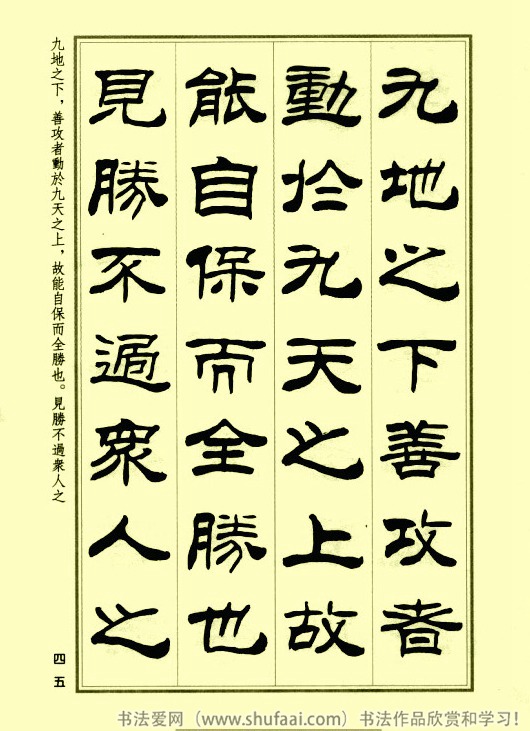 九地之下善攻者
動於九天之上故
能自保而全勝也
見勝不過衆人之
九地之下，善攻者動於九天之上，故能自保而全勝也。見勝不過衆人之
四五
书法爱网（www.shufaai.com）书法作品欣赏和学习！